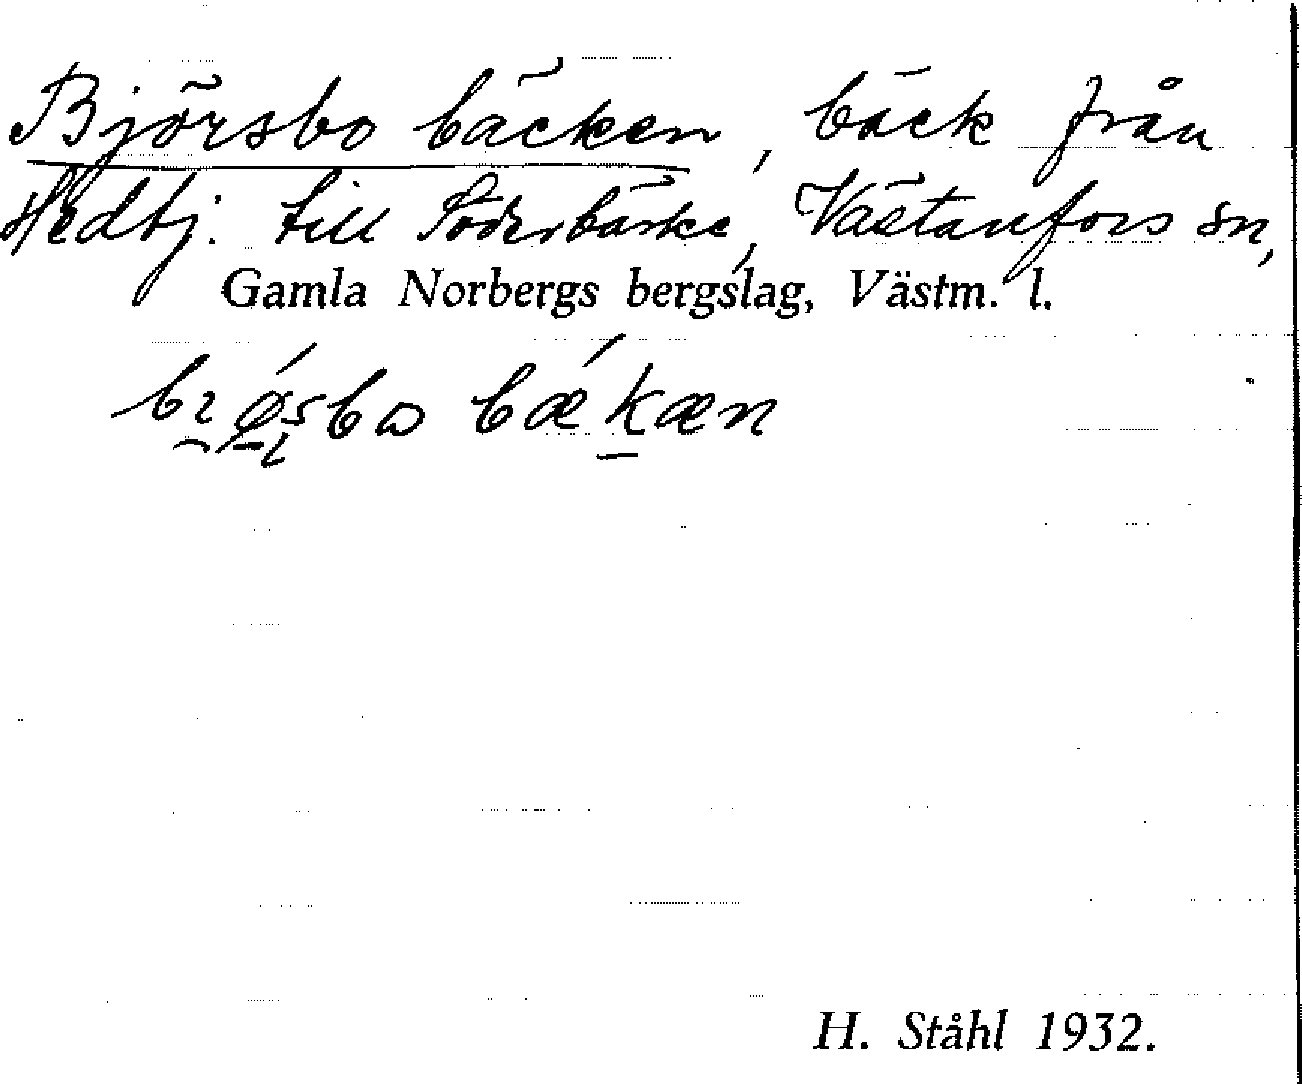 Björsbo bäcken, bäck från
Hedbj. till Söderbärke, Västanfors sn,
Gamla Norbergs bergslag, Västm. l.
bæ´kæn
H. Ståhl 1932.